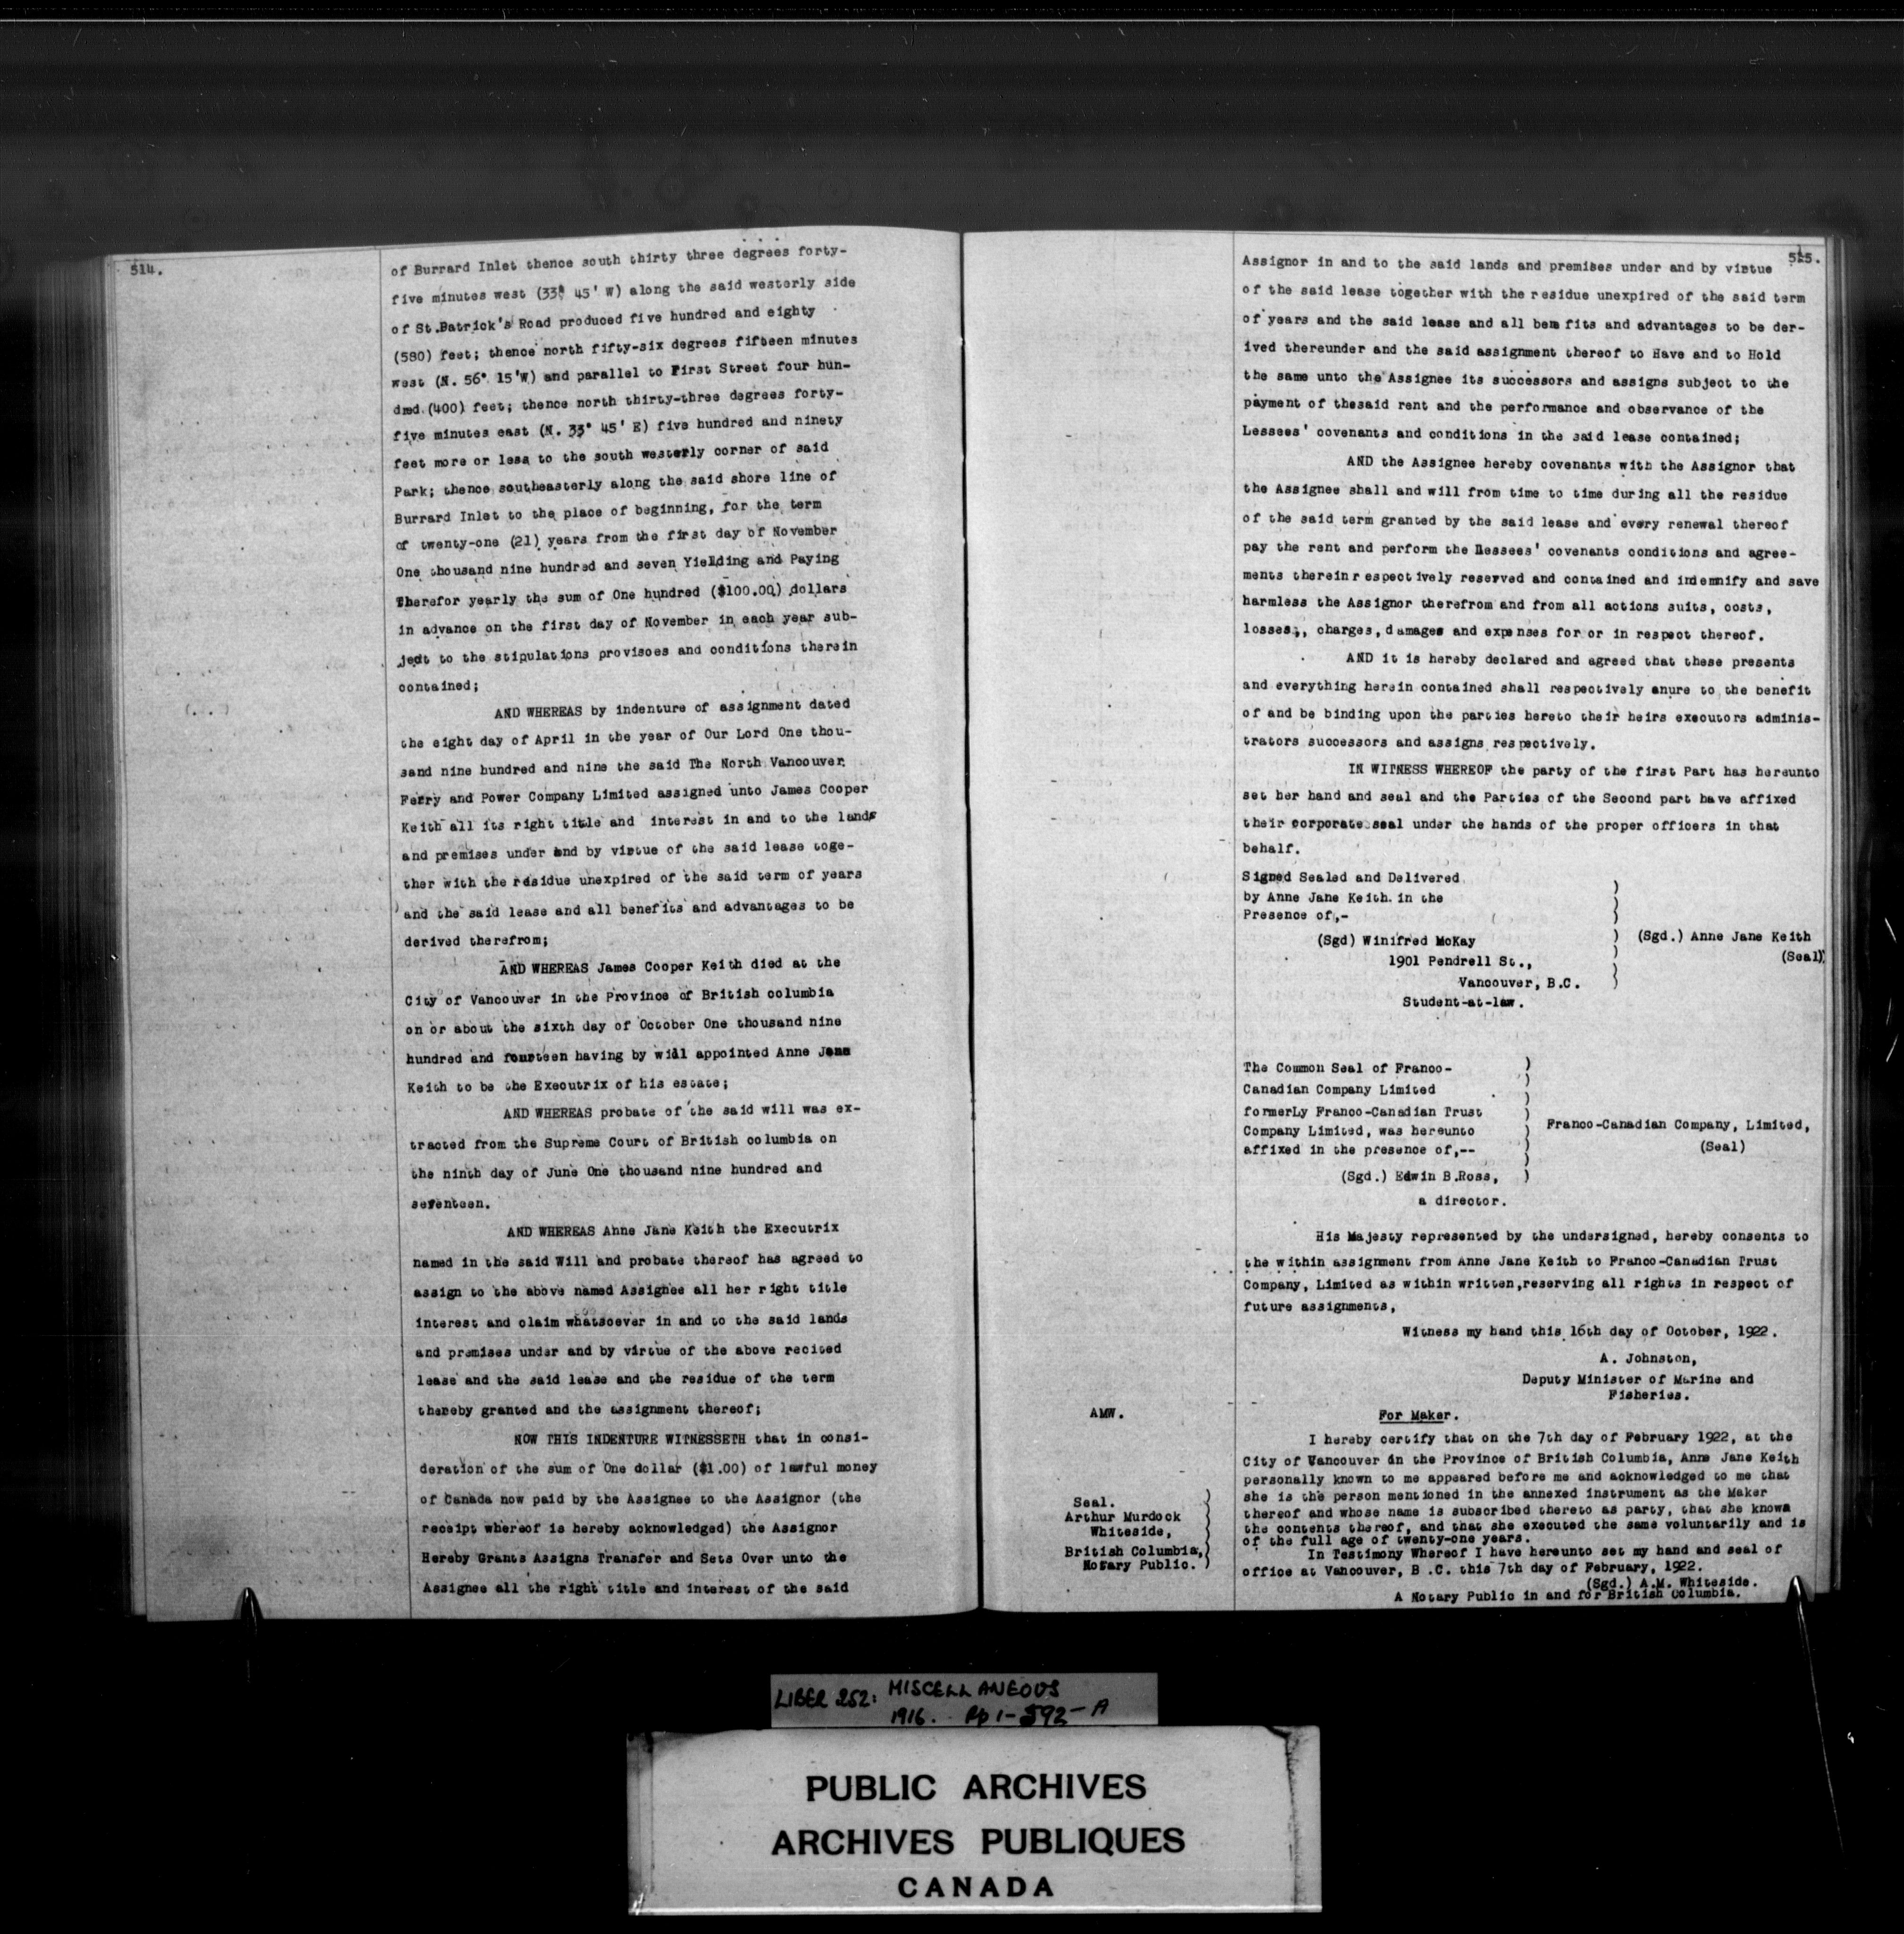 514.
of Burrard Inlet thence south thirty three degrees forty-
five minutes west (33° 45' W) along the said westerly side
of St.Patrick's Road produced five hundred and eighty
(580) feet; thence north fifty-six degrees fifteen minutes
west (N. 56° 15'W) and parallel to First Street four hun-
dred (400) feet; thence north thirty-three degrees forty-
five minutes east (N. 33° 45' E) five hundred and ninety
feet more or less to the south westerly corner of said
Park; thence southeasterly along the said shore line of
Burrard Inlet to the place of beginning, for the term
of twenty-one (21) years from the first day of November
One thousand nine hundred and seven Yielding and Paying
Therefor yearly the sum of One hundred ($100.00) dollars
in advance on the first day of November in each year sub-
ject to the stipulations provisoes and conditions therein
contained;
AND WHEREAS by indenture of assignment dated
the eight day of April in the year of Our Lord One thou-
sand nine hundred and nine the said The North Vancouver
Ferry and Power Company Limited assigned unto James Cooper
Keith all its right title and interest in and to the lands
and premises under and by virtue of the said lease toge-
ther with the residue unexpired of the said term of years
and the said lease and all benefits and advantages to be
derived therefrom;
AND WHEREAS James Cooper Keith died at the
City of Vancouver in the Province of British columbia
on or about the sixth day of October One thousand nine
hundred and fourteen having by will appointed Anne Jane
Keith to be the Executrix of his estate;
AND WHEREAS probate of the said will was ex-
tracted from the Supreme Court of British columbia on
the ninth day of June One thousand nine hundred and
seventeen.
AND WHEREAS Anne Jane Keith the Executrix
named in the said Will and probate thereof has agreed to
assign to the above named Assignee all her right title
interest and claim whatsoever in and to the said lands
and premises under and by virtue of the above recited
lease and the said lease and the residue of the term
thereby granted and the assignment thereof;
NOW THIS INDENTURE WITNESSETH that in consi-
deration of the sum of One dollar ($1.00) of lawful money
of Canada now paid by the Assignee to the Assignor (the
receipt whereof is hereby acknowledged) the Assignor
Hereby Grants Assigns Transfer and Sets Over unto the
Assignee all the right title and interest of the said
515.
Assignor in and to the said lands and premises under and by virtue
of the said lease together with the residue unexpired of the said term
of years and the said lease and all benefits and advantages to be der-
ived thereunder and the said assignment thereof to Have and to Hold
the same unto the Assignee its successors and assigns subject to the
payment of thesaid rent and the performance and observance of the
Lessees' covenants and conditions in the said lease contained;
AND the Assignee hereby covenants with the Assignor that
the Assignee shall and will from time to time during all the residue
of the said term granted by the said lease and every renewal thereof
pay the rent and perform the Lessees' covenants conditions and agree-
ments therein respectively reserved and contained and indemnify and save
harmless the Assignor therefrom and from all actions suits, costs,
losses,, charges, damages and expenses for or in respect thereof.
AND it is hereby declared and agreed that these presents
and everything herein contained shall respectively enure to the benefit
of and be binding upon the parties hereto their heirs executors adminis-
trators successors and assigns respectively.
IN WITNESS WHEREOF the party of the first Part has hereunto
set her hand and seal and the Parties of the Second part have affixed
their corporate seal under the hands of the proper officers in that
behalf.
Signed Sealed and Delivered
by Anne Jane Keith in the
Presence of,-
(Sgd) Winifred McKay
1901 Pendrell St.,
Vancouver, B.C.
Student-at-law.
(Sgd.) Anne Jane Keith
(Seal)
The Common Seal of Franco-
Canadian Company Limited
formerLy Franco-Canadian Trust
Company Limited, was hereunto
affixed in the presence of,--
(Sgd.) Edwin B.Ross,
a director.
Franco-Canadian Company, Limited,
(Seal)
His Majesty represented by the undersigned, hereby consents to
the within assignment from Anne Jane Keith to Franco-Canadian Trust
Company, Limited as within written,reserving all rights in respect of
future assignments,
Witness my hand this 16th day of October, 1922.
A. Johnston,
Deputy Minister of Marine and
Fisheries.
AMW.
For Maker.
I hereby certify that on the 7th day of February 1922, at the
City of Vancouver in the Province of British Columbia, Anne Jane Keith
personally known to me appeared before me and acknowledged to me that
she is the person mentioned in the annexed instrument as the Maker
thereof and whose name is subscribed thereto as party, that she knows
the contents thereof, and that she executed the same voluntarily and is
of the full age of twenty-one years.
In Testimony Whereof I have hereunto set my hand and seal of
office at Vancouver, B.C. this 7th day of February, 1922.
(Sgd.) A.M. Whiteside.
A Notary Public in and for British Columbia.
Seal.
Arthur Murdock
Whiteside,
British Columbia,
Notary Public.
LIBER 252: MISCELLANEOUS
1916. Pp 1-592-A
PUBLIC ARCHIVES
ARCHIVES PUBLIQUES
CANADA